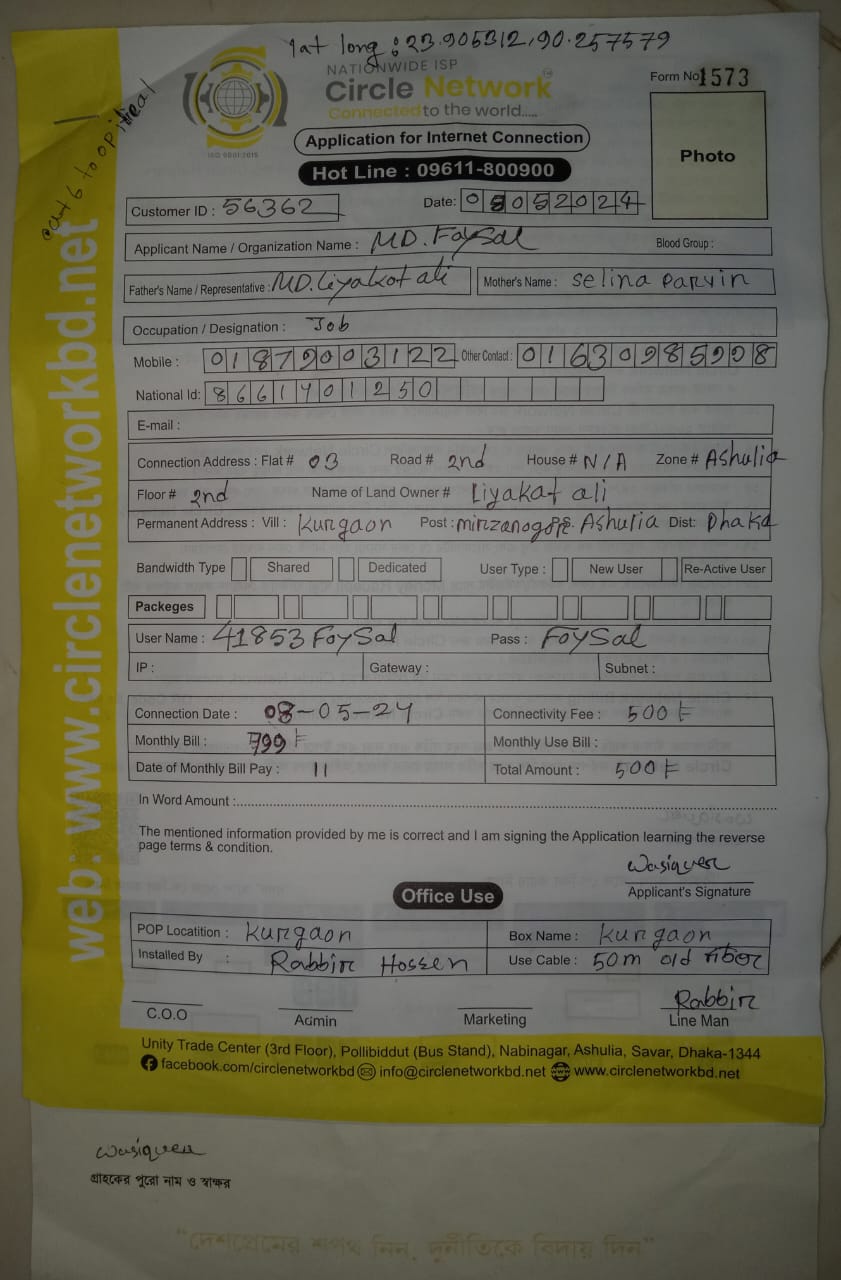 lat long : 23.905312,90.257579
NATIONWIDE ISP
Circle Network
Connected to the world.....
ISO 9001:2015
Form No 1573
Application for Internet Connection
Photo
Hot Line : 09611-800900
Customer ID : 56362 Date: 08052024
Applicant Name / Organization Name : MD. Faysal Blood Group :
Father's Name / Representative : MD. Liyakot ali Mother's Name : Selina Parvin
Occupation / Designation : Job
Mobile : 01879003122 Other Contact : 01630985998
National Id: 8661401250
E-mail :
Connection Address : Flat # 03 Road # 2nd House # N/A Zone # Ashulia
Floor # 2nd Name of Land Owner # Liyakat ali
Permanent Address : Vill : Kurgaon Post : Ashulia Dist: Dhaka
Bandwidth Type Shared Dedicated User Type : New User Re-Active User
Packeges
User Name : 41853 FaySal Pass : FaySal
IP : Gateway : Subnet :
Connection Date : 08-05-24 Connectivity Fee : 500 ৳
Monthly Bill : 799 ৳ Monthly Use Bill :
Date of Monthly Bill Pay : 11 Total Amount : 500 ৳
In Word Amount :
The mentioned information provided by me is correct and I am signing the Application learning the reverse
page terms & condition.
Applicant's Signature
Office Use
POP Locatition : Kurgaon Box Name : Kurgaon
Installed By : Rabbir Hossen Use Cable : 50m old
Rabbir
C.O.O Admin Marketing Line Man
Unity Trade Center (3rd Floor), Pollibiddut (Bus Stand), Nabinagar, Ashulia, Savar, Dhaka-1344
facebook.com/circlenetworkbd info@circlenetworkbd.net www.circlenetworkbd.net
web: www.circlenetworkbd.net
গ্রাহকের পুরো নাম ও স্বাক্ষর
"দেশপ্রেমের শপথ নিন, দুর্নীতিকে বিদায় দিন"